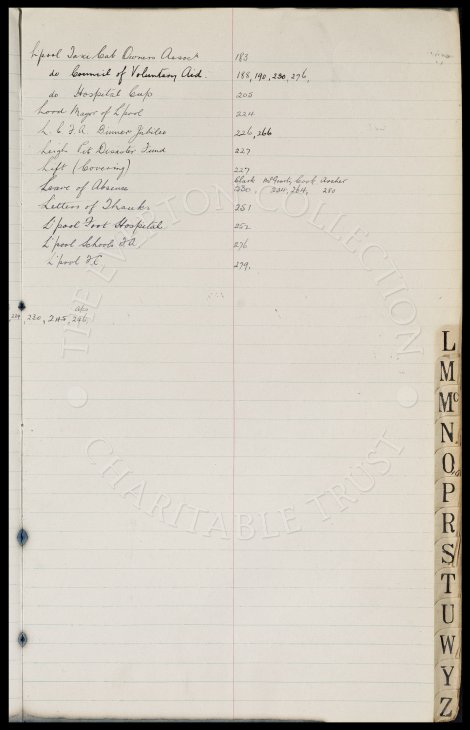 L'pool Taxi Cab Owners Assocn 183
do Council of Voluntary Aid. 188, 190, 230, 276,
do Hospital Cup 205
Lord Mayor of L'pool 224
L. C. F. A. Dinner Jubilee 226, 266
Leigh Pit Disaster Fund 227
Lift (Covering) 227
Clark McGourty Cook Archer
Leave of Absence 230, 234, 264, 280
Letters of Thanks 251
L'pool Foot Hospital 252
L'pool Schools F.A. 276
L'pool F.C 279,
229, 230, 245, 246,
THE EVERTON COLLECTION
CHARITABLE TRUST
L
M
Mc
N
O
P
R
S
T
U
W
Y
Z